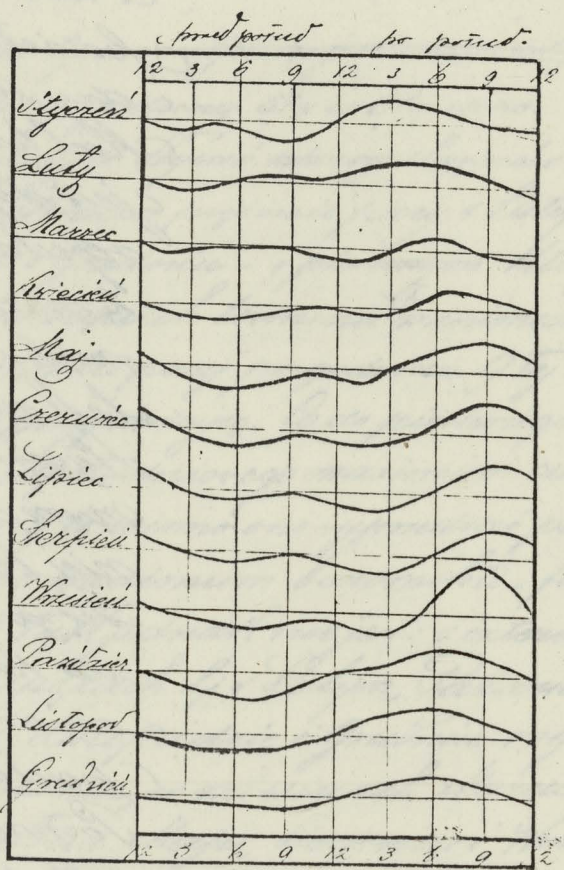 przed połud po połud
12 3 6 9 12 3 6 9 12
Styczeń
Luty
Marzec
Kwiecień
Maj
Czerwiec
Lipiec
Sierpień
Wrzesień
Paździer
Listopad
Grudzień
12 3 6 9 12 3 6 9 12